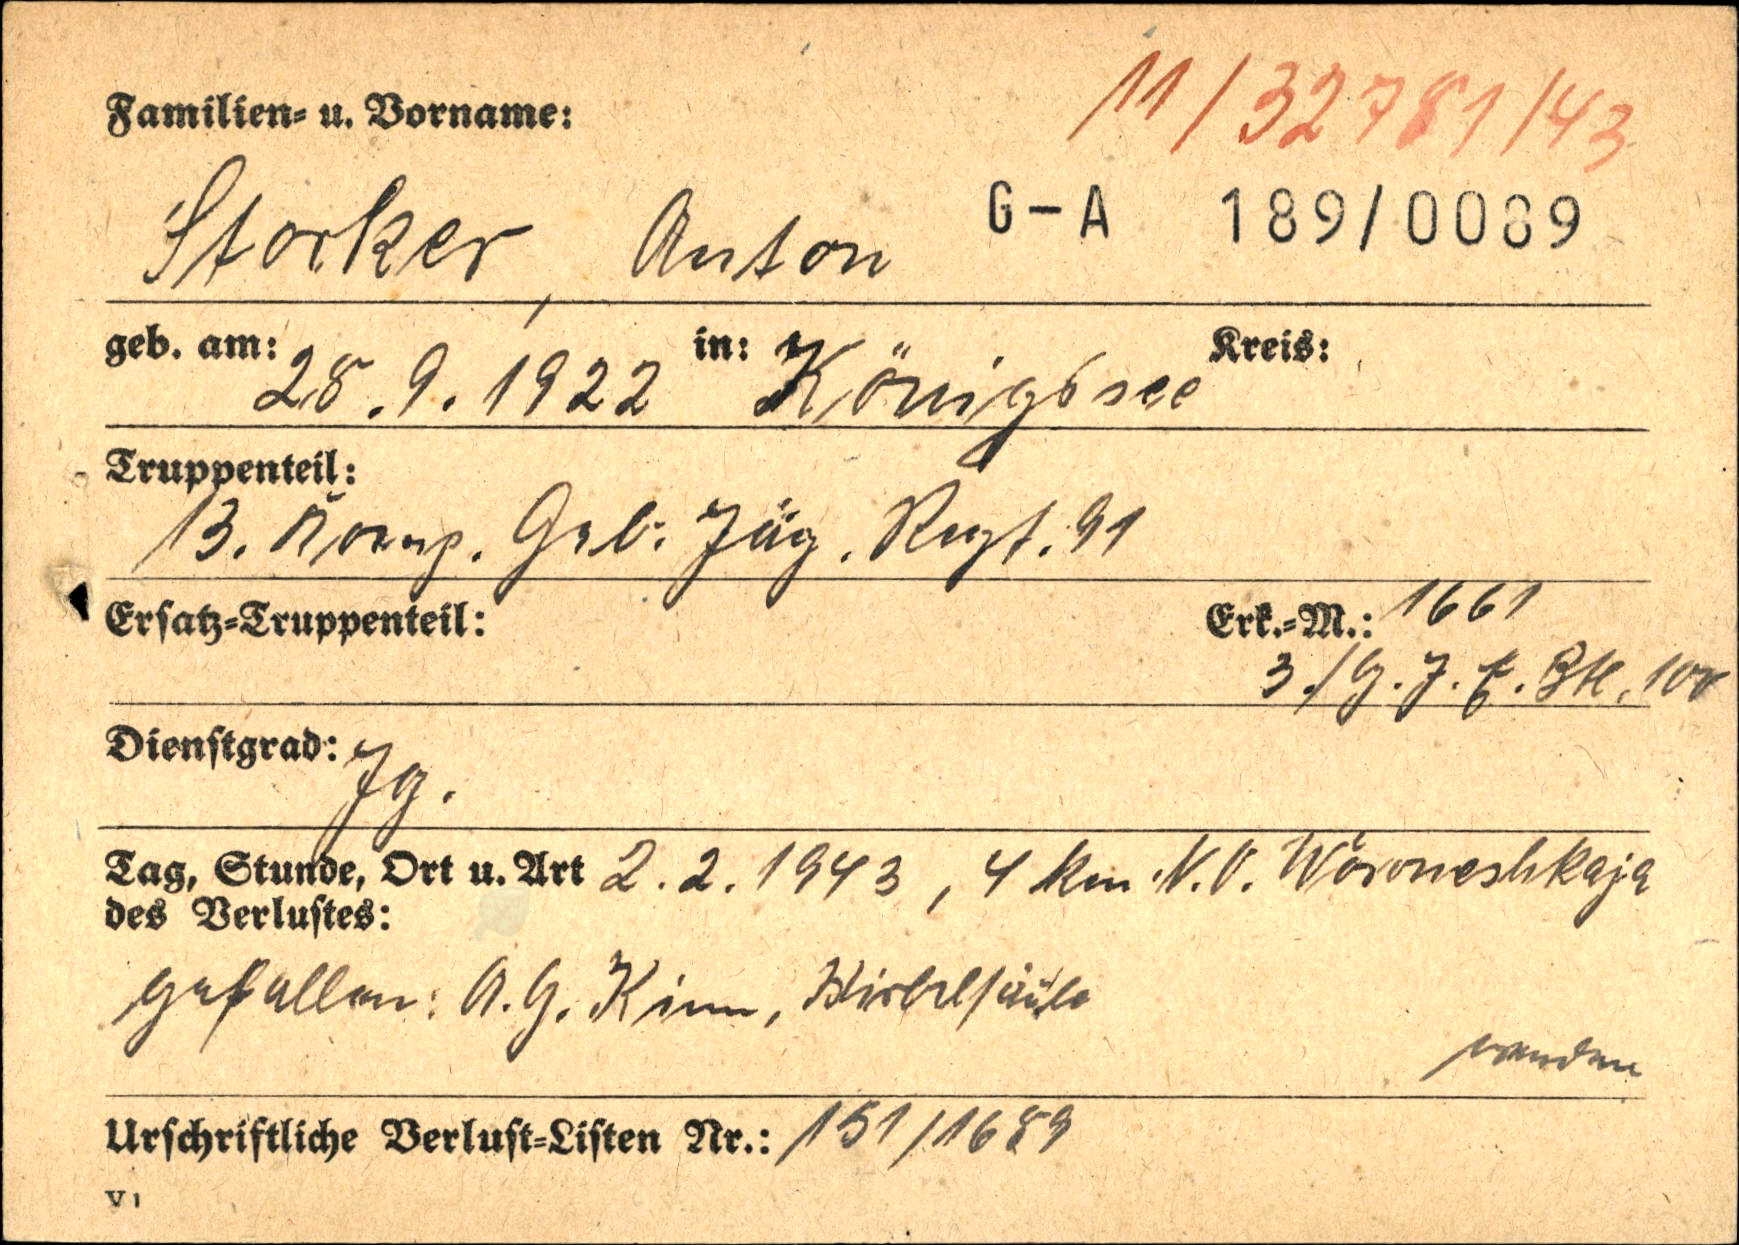 11/32781/43
Familien- u. Vorname:
G-A 189/0089
Storker, Anton
geb. am: 28.9.1922 in: Königssee Kreis:
Truppenteil:
13. Komp. Geb. Jäg. Regt. 91
Ersatz-Truppenteil: Erk.-M.: 1661
3./G.J.E.Btl. 100
Dienstgrad: Jg.
Tag, Stunde, Ort u. Art 2.2.1943, 4 km N.O. Woroneshkaja
des Verlustes:
gefallen: A.G. Kinn, Wirbelsäule
Urschriftliche Verlust-Listen Nr.: 151/1689
V1